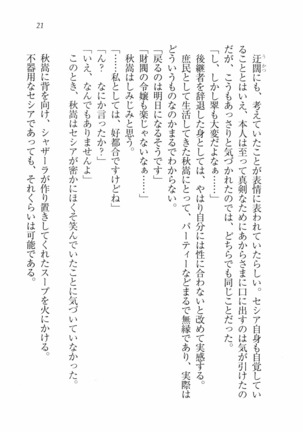 21
迂闊にも、考えていたことが表情に表われていたらしい。セシア自身も自覚してい
ることとはいえ、本人は至って真剣なためにあからさまに口に出すのは気が引けたの
だが、こうもあっさりと気づかれたのでは、どちらでも同じことだった。
「し、しかし翠も大変だよなぁ……」
後継者を辞退した身としては、やはり自分には性に合わないと改めて実感する。
庶民として生活してきた秋嵩にとって、パーティーなどまるで無縁であり、実際は
どういうものなのかまるでわからない。
「戻るのは明日になるそうです」
「財閥の令嬢も楽じゃないなぁ……」
秋嵩はしみじみと思う。
「……私としては、好都合ですけどね」
「ん？　なにか言ったか？」
「いえ、なんでもありませんよ」
このとき、秋嵩はセシアが密かにほくそ笑んでいたことに気づいていなかった。
秋嵩に背を向け、シャザーラが作り置きしてくれたスープを火にかける。
不器用なセシアであっても、それくらいは可能である。